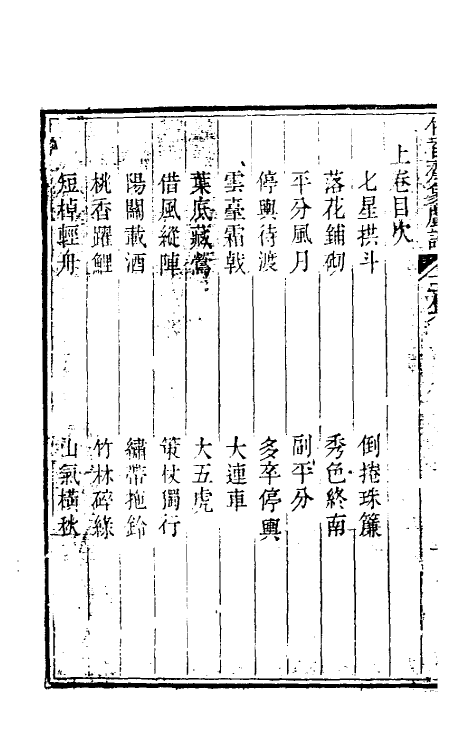 竹香齋象戲譜 上卷
上卷目次
七星拱斗 倒捲珠簾
落花鋪砌 秀色終南
平分風月 副平分
停輿待渡 多卒停輿
雲臺霜戟 大連車
葉底藏鶯 大五虎
借風縱陣 策杖獨行
陽關載酒 繡帶拖鈴
桃香躍鯉 竹林碎綠
短棹輕舟 山氣橫秋